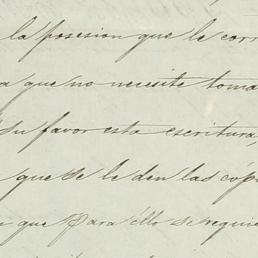 la posesion que le corr
a que no necesite toma
su favor esta escritura,
que se le den las cópi
que para éllo se requie